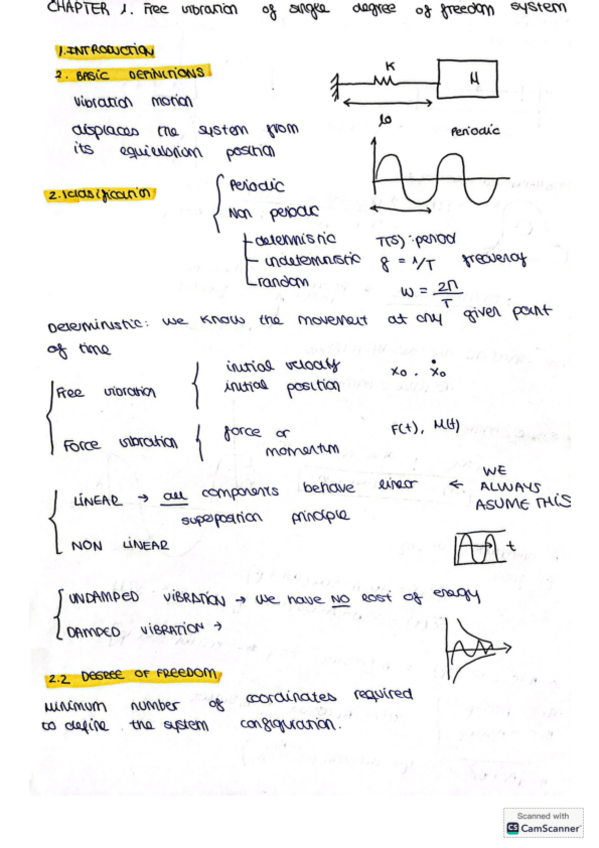 CHAPTER 1. Free vibration of single degree of freedom system
1. INTRODUCTION
2. BASIC DEFINITIONS
K
M
lo
Vibration motion
displaces the system from
its equilibrium position
Periodic
2.1 classification
Periodic
Non periodic
deterministic
T(s): period
undeterministic
f = 1/T frequency
random
ω = 2Π/T
Deterministic: we know the movement at any given point
of time
Free vibration
initial velocity
initial position
xo . ẋo
Force vibration
force or
momentum
F(t), M(t)
LINEAR → all components behave linear ← WE
ALWAYS
ASUME THIS
superposition principle
NON LINEAR
t
UNDAMPED VIBRATION → we have NO lost of energy
DAMPED VIBRATION →
2.2 DEGREE OF FREEDOM
Minimum number of coordinates required
to define the system configuration.
Scanned with
CS CamScanner